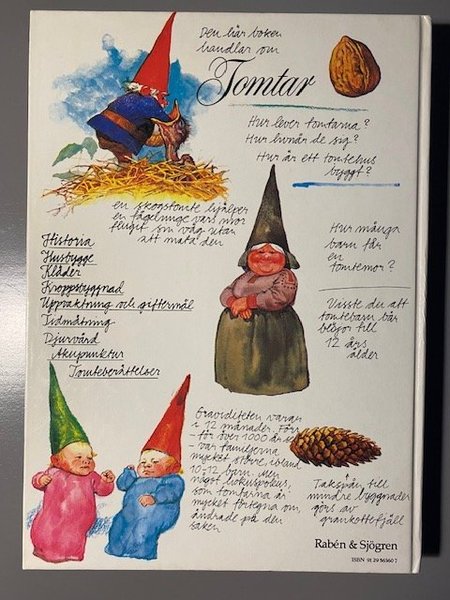 Den här boken
handlar om
Tomtar
Hur lever tomtarna?
Hur livnär de sig?
Hur är ett tomtehus
byggt?
en skogstomte hjälper
en fågelunge vars mor
flugit sin väg utan
att mata den
Historia
Husbygge
Kläder
Kroppsbyggnad
Uppvaktning och giftermål
Tidmätning
Djurvård
Akupunktur
Tomteberättelser
Hur många
barn får
en
tomtemor?
Visste du att
tomtebarn bär
blöjor till
12 års
ålder
Graviditeten varar
i 12 månader. Förr
- för över 1000 år sen
- var familjerna
mycket större, ibland
10-12 barn. Men
något hokuspokus,
som tomtarna är
mycket förtegna om,
ändrade på den
saken
Takspån till
mindre byggnader
görs av
grankottefjäll
Rabén & Sjögren
ISBN 91 29 56560 7